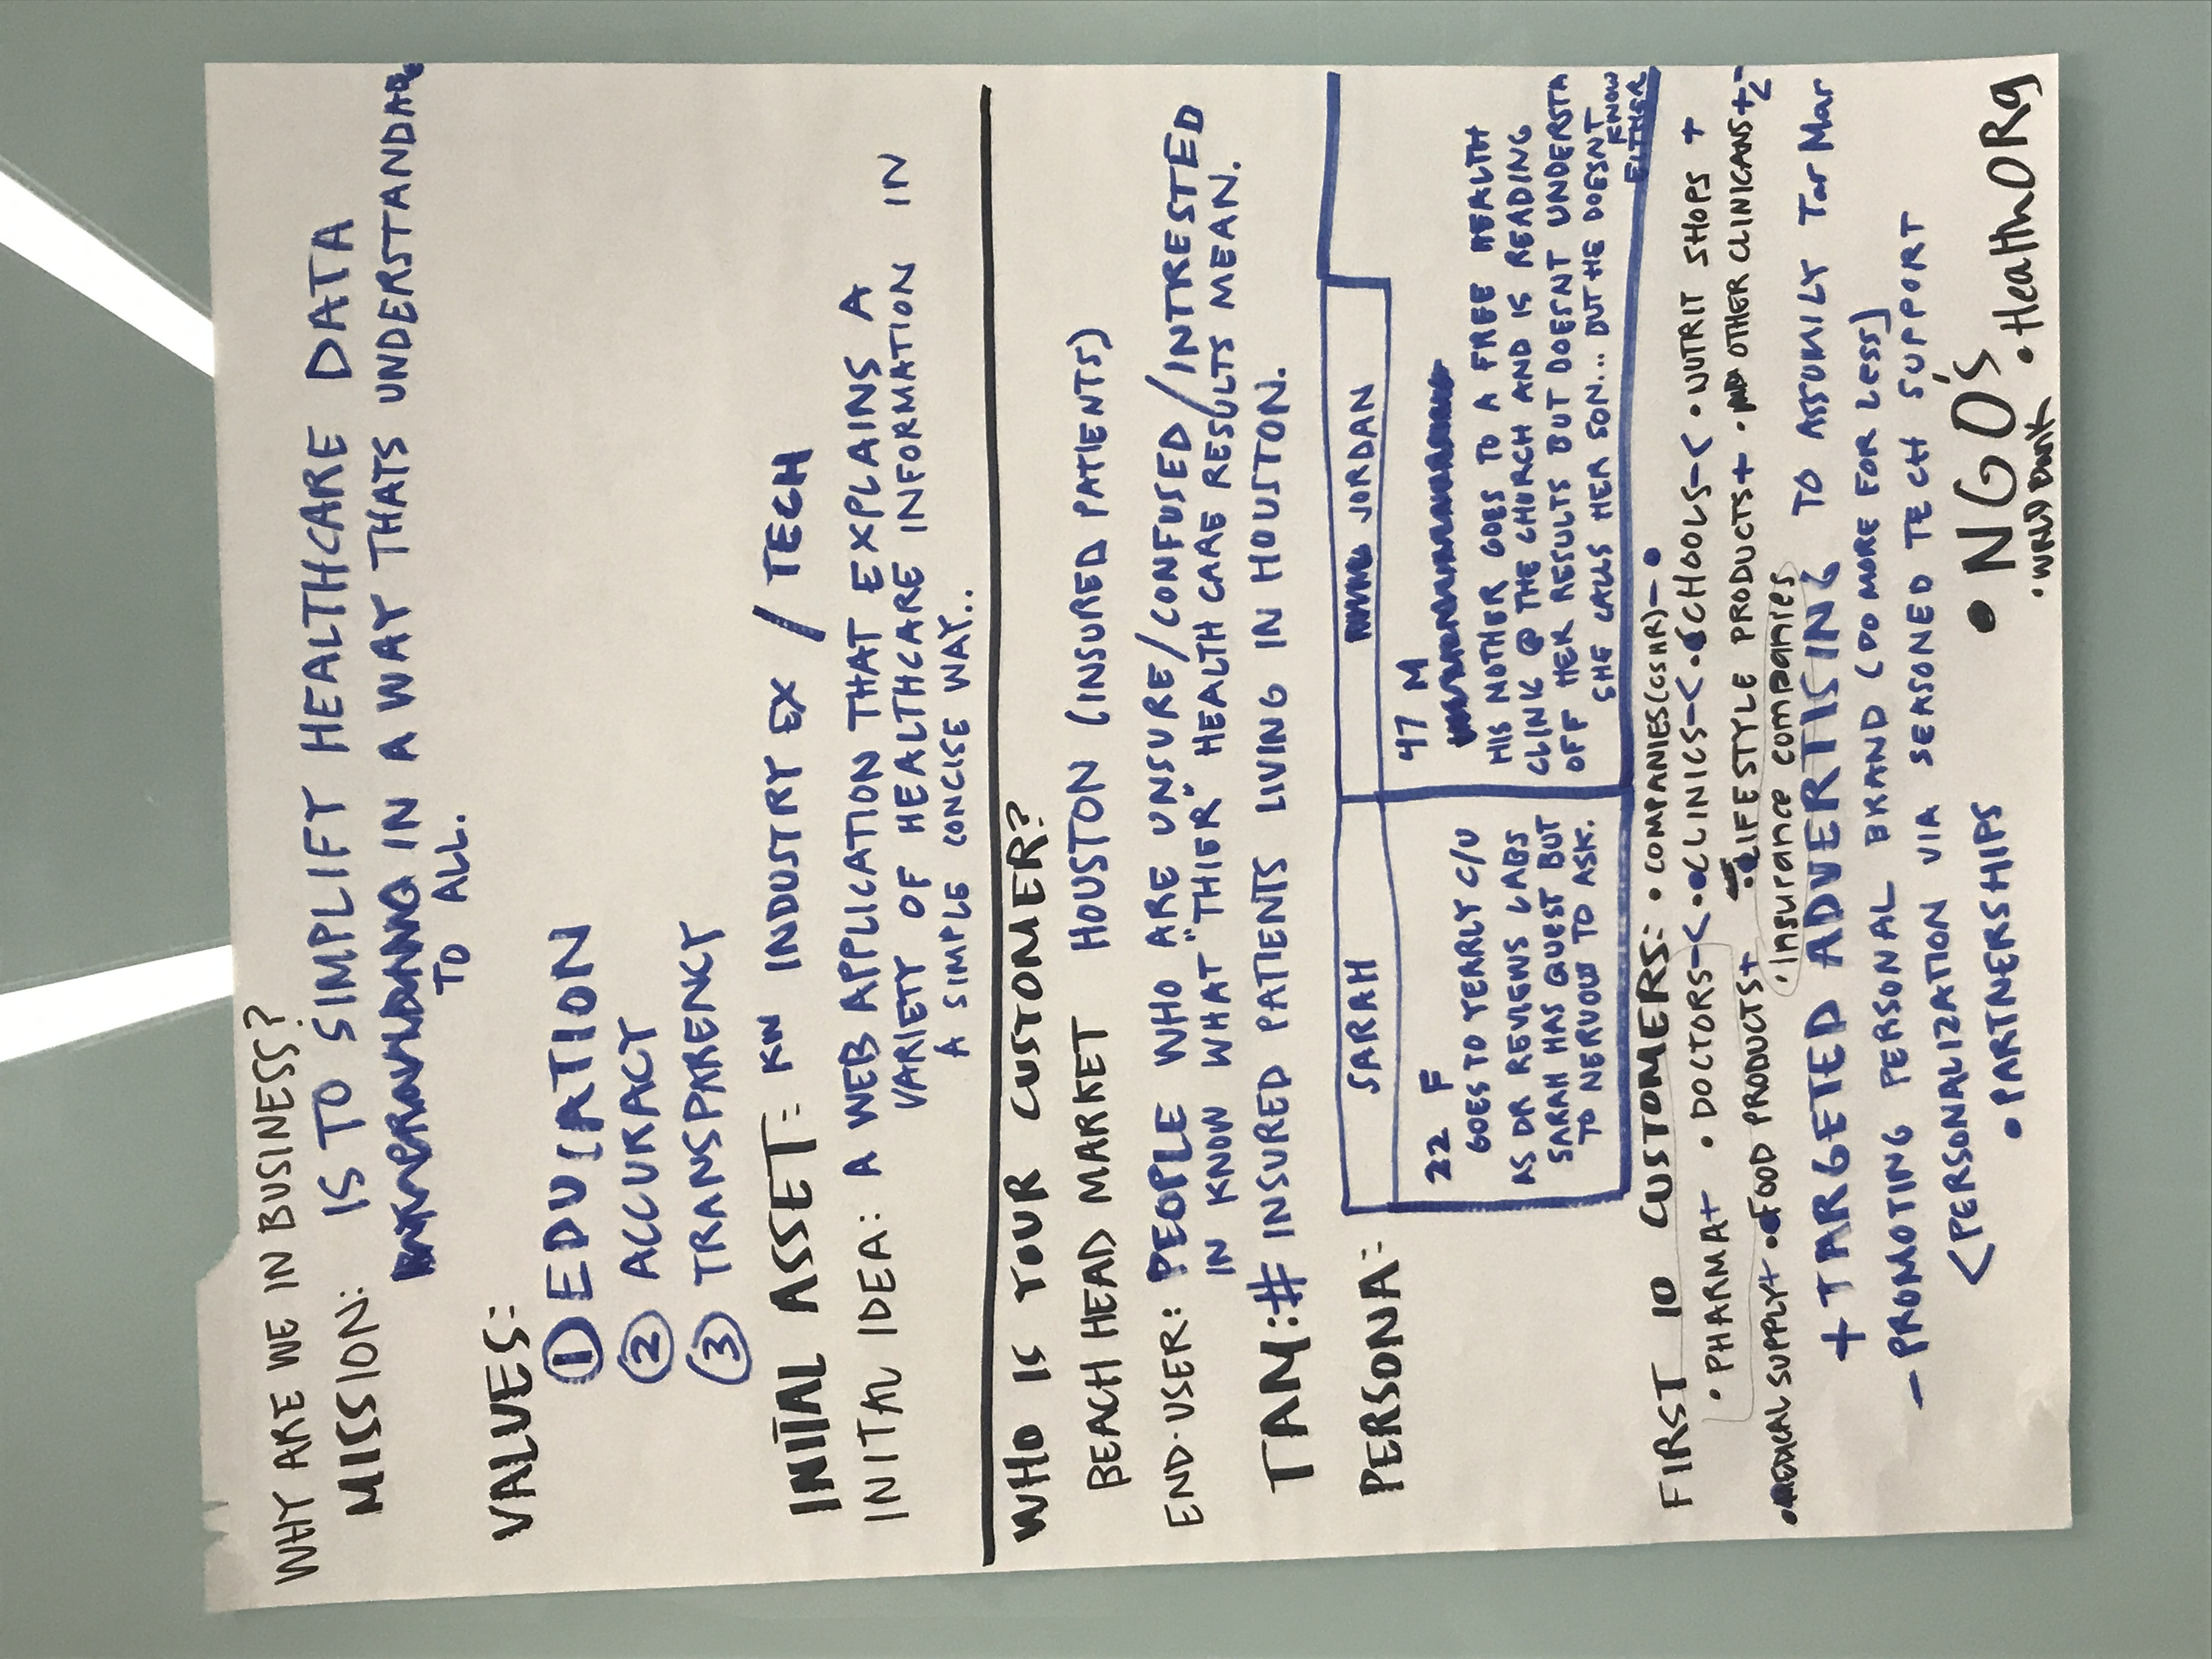 WHY ARE WE IN BUSINESS?
MISSION: IS TO SIMPLIFY HEALTHCARE DATA
IN A WAY THATS UNDERSTANDABLE
TO ALL.
VALUES:
① EDUCATION
② ACCURACY
③ TRANSPARENCY
INITAL ASSET: KN INDUSTRY EX / TECH
INITAL IDEA: A WEB APPLICATION THAT EXPLAINS A
VARIETY OF HEALTHCARE INFORMATION IN
A SIMPLE CONCISE WAY..
WHO IS YOUR CUSTOMER?
BEACH HEAD MARKET HOUSTON (INSURED PATIENTS)
END-USER: PEOPLE WHO ARE UNSURE/CONFUSED/INTRESTED
IN KNOW WHAT "THIER" HEALTH CARE RESULTS MEAN.
TAM: # INSURED PATIENTS LIVING IN HOUSTON.
PERSONA:
SARAH
22 F
GOES TO YEARLY C/U
AS DR REVIEWS LABS
SARAH HAS QUEST BUT
TO NERVOU TO ASK.
JORDAN
47 M
HIS MOTHER GOES TO A FREE HEALTH
CLINIC @ THE CHURCH AND IS READING
OFF HER RESULTS BUT DOESNT UNDERSTA
SHE CALLS HER SON... BUT HE DOESNT
KNOW
EITHER
FIRST 10 CUSTOMERS: • COMPANIES (CSHR) - •
• PHARMA+ • DOCTORS-< • CLINICS-< • SCHOOLS-< • NUTRIT SHOPS +
• MEDICAL SUPPLY+ • FOOD PRODUCTS+ • LIFESTYLE PRODUCTS+ • OTHER CLINICANS+
• Insurance companies
+ TARGETED ADVERTISING TO Tar Mar
- PROMOTING PERSONAL BRAND (DO MORE FOR LESS)
< PERSONALIZATION VIA SEASONED TECH SUPPORT
• PARTNERSHIPS
• NGO'S
• HealthORg